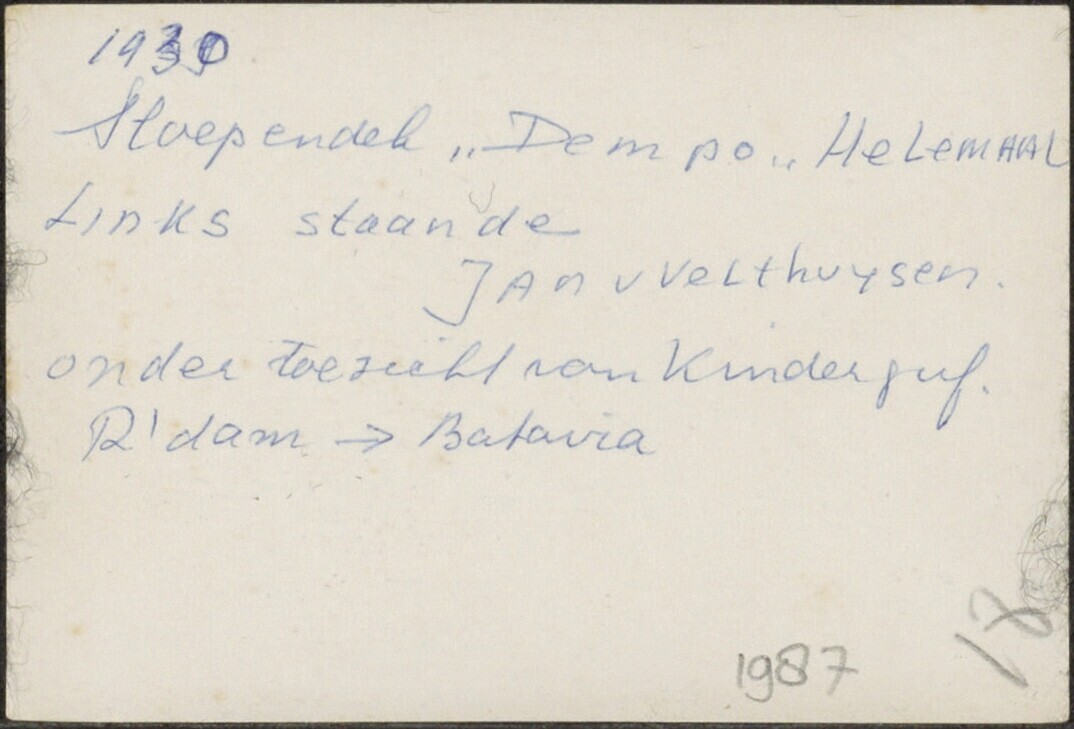 1930
Sloependek „Dempo„ HeLemAAL
Links staande
JAn v Velthuysen.
onder toezicht van Kinderjuf.
R'dam → Batavia
1987
18